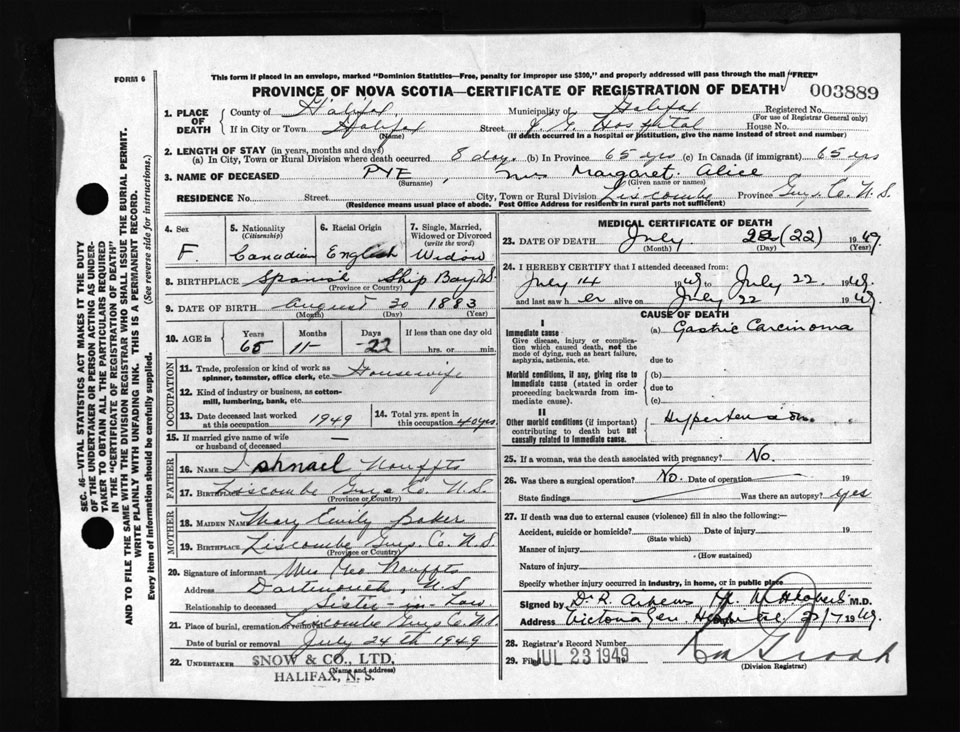 FORM 6
This form if placed in an envelope, marked "Dominion Statistics—Free, penalty for improper use $300," and properly addressed will pass through the mail "FREE"
PROVINCE OF NOVA SCOTIA—CERTIFICATE OF REGISTRATION OF DEATH
003889
1. PLACE OF DEATH
County of Halifax Municipality of Halifax Registered No.
(For use of Registrar General only)
If in City or Town Halifax Street V. G. Hospital House No.
(Name) (If death occurred in a hospital or institution, give the name instead of street and number)
2. LENGTH OF STAY (in years, months and days)
(a) In City, Town or Rural Division where death occurred 8 days. (b) In Province 65 yrs (c) In Canada (if immigrant) 65 yrs
3. NAME OF DECEASED PYE, Mrs Margaret Alice
(Surname) (Given name or names)
RESIDENCE No. Street City, Town or Rural Division Liscombe Province Guys. Co. N.S.
(Residence means usual place of abode. Post Office Address for residents in rural parts not sufficient)
4. Sex
F.
5. Nationality (Citizenship)
Canadian
6. Racial Origin
English
7. Single, Married, Widowed or Divorced (write the word)
Widow
8. BIRTHPLACE Spanish Ship Bay N.S.
(Province or Country)
9. DATE OF BIRTH August 30 1883
(Month) (Day) (Year)
10. AGE in
Years Months Days If less than one day old
65 11 22 hrs. or min.
OCCUPATION
11. Trade, profession or kind of work as spinner, teamster, office clerk, etc. Housewife
12. Kind of industry or business, as cotton-mill, lumbering, bank, etc.
13. Date deceased last worked at this occupation 1949
14. Total yrs. spent in this occupation 40 yrs
15. If married give name of wife or husband of deceased —
FATHER
16. NAME Ishmael Nouffts
17. BIRTHPLACE Liscombe Guys Co. N.S.
(Province or Country)
MOTHER
18. MAIDEN NAME Mary Emily Baker
19. BIRTHPLACE Liscombe Guys. Co. N.S.
(Province or Country)
20. Signature of informant Mrs Geo Nouffts
Address Dartmouth, N.S.
Relationship to deceased Sister-in-Law.
21. Place of burial, cremation or removal Liscombe Guys Co. N.S.
Date of burial or removal July 24th 1949
22. UNDERTAKER SNOW & CO., LTD.
(Name and address)
HALIFAX, N. S.
MEDICAL CERTIFICATE OF DEATH
23. DATE OF DEATH July 22 (22) 1949
(Month) (Day) (Year)
24. I HEREBY CERTIFY that I attended deceased from:
July 14 1949 to July 22 1949
and last saw her alive on July 22 1949.
CAUSE OF DEATH
I
Immediate cause
Give disease, injury or complication which caused death, not the mode of dying, such as heart failure, asphyxia, asthenia, etc.
(a) Gastric Carcinoma
due to
Morbid conditions, if any, giving rise to immediate cause (stated in order proceeding backwards from immediate cause).
(b)
due to
(c)
II
Other morbid conditions (if important) contributing to death but not causally related to immediate cause.
Hypertension.
25. If a woman, was the death associated with pregnancy? No.
26. Was there a surgical operation? No. Date of operation 19
State findings Was there an autopsy? yes
27. If death was due to external causes (violence) fill in also the following:—
Accident, suicide or homicide? Date of injury 19
(State which)
Manner of injury
(How sustained)
Nature of injury
Specify whether injury occurred in industry, in home, or in public place
Signed by Dr R. M.D.
Address Victoria Gen. Hospital 23/7 1949.
28. Registrar's Record Number
29. Filed JUL 23 1949
(Division Registrar)
SEC. 46—VITAL STATISTICS ACT MAKES IT THE DUTY
OF THE UNDERTAKER OR PERSON ACTING AS UNDER-
TAKER TO OBTAIN ALL THE PARTICULARS REQUIRED
IN THE "CERTIFICATE OF REGISTRATION OF DEATH"
AND TO FILE THE SAME WITH THE DIVISION REGISTRAR WHO SHALL ISSUE THE BURIAL PERMIT.
WRITE PLAINLY WITH UNFADING INK. THIS IS A PERMANENT RECORD.
Every item of information should be carefully supplied. (See reverse side for instructions.)